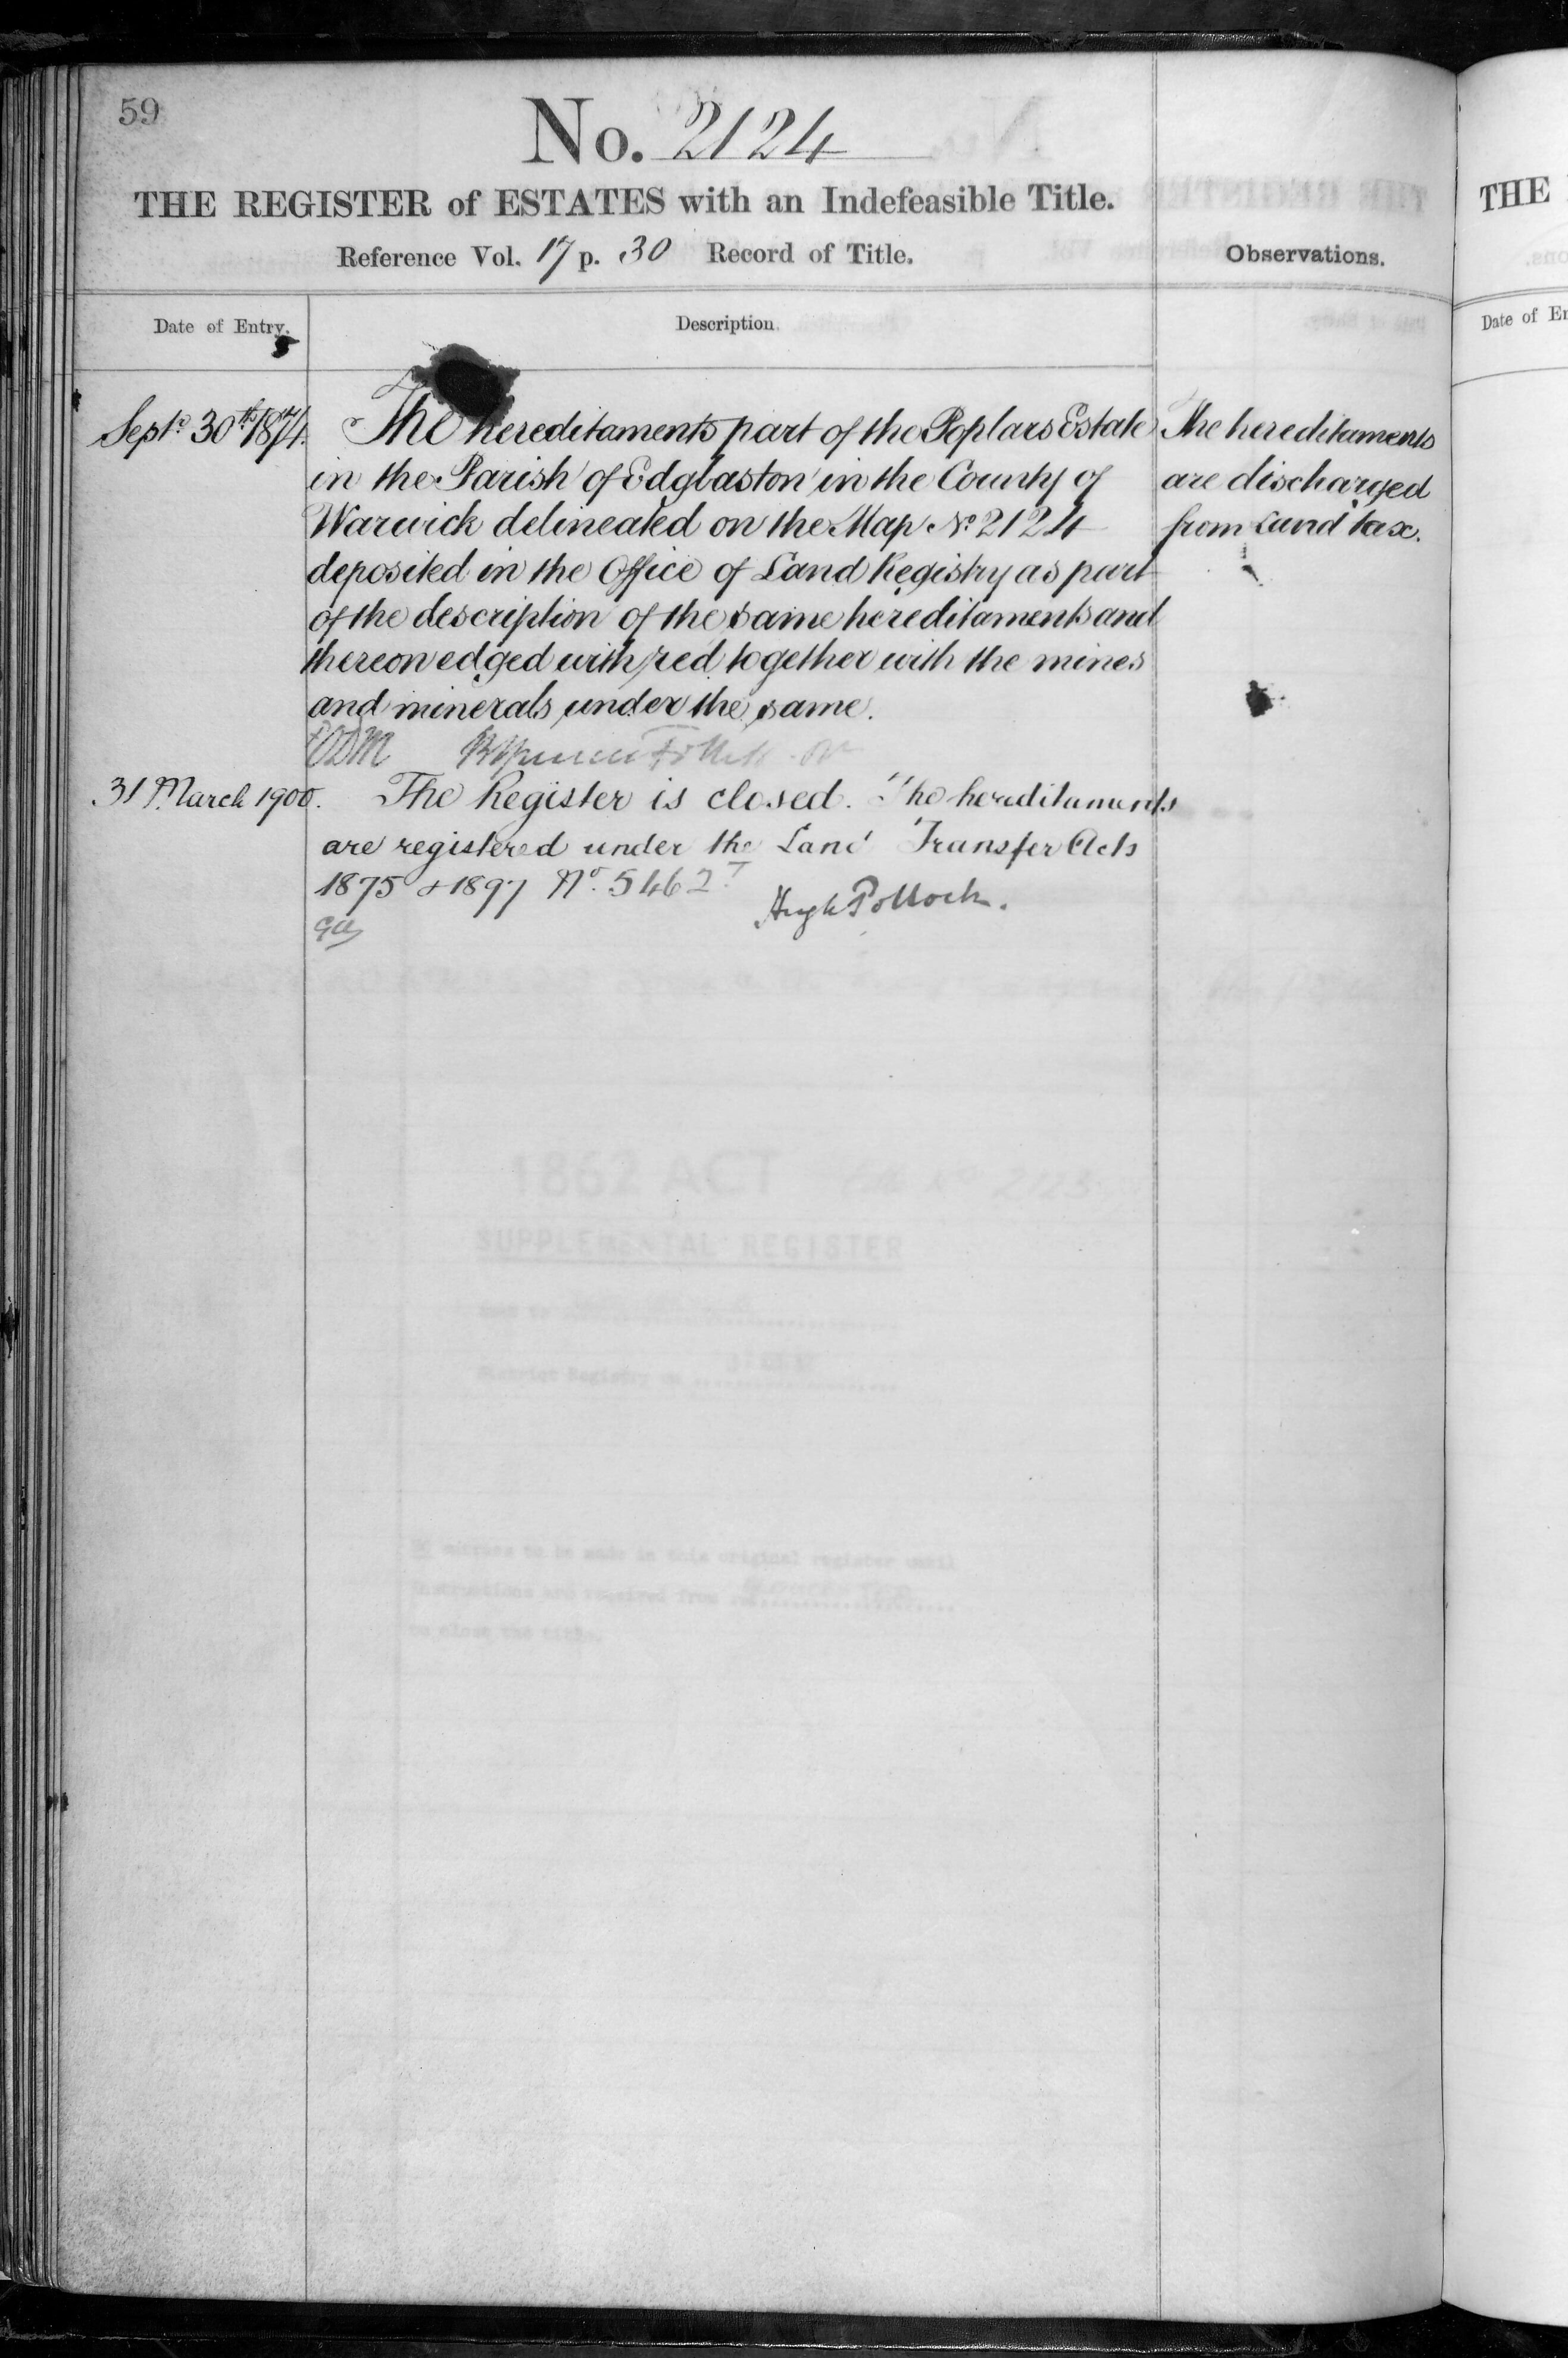 59
No. 2124
THE REGISTER of ESTATES with an Indefeasible Title.
Reference Vol. 17 p. 30 Record of Title.
Observations.
Date of Entry.
Description.
Septr 30th 1874.
The hereditaments part of the Poplars Estate
in the Parish of Edgbaston in the County of
Warwick delineated on the Map No 2124
deposited in the Office of Land Registry as part
of the description of the same hereditaments and
thereon edged with red together with the mines
and minerals under the same.
The hereditaments
are discharged
from Land tax.
31 March 1900.
The Register is closed. The hereditaments
are registered under the Land Transfer Acts
1875 & 1897 No. 5462
Hugh Pollock.
1862 ACT
SUPPLEMENTAL REGISTER
THE
Date of En